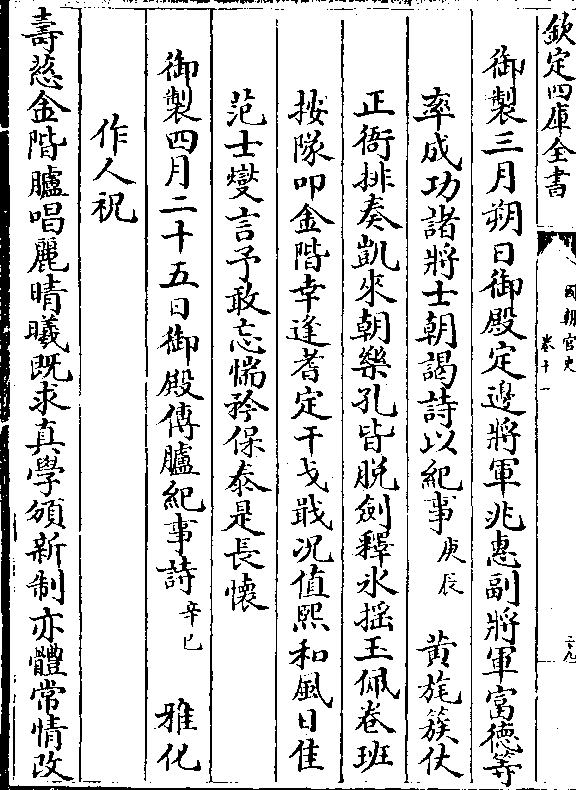 欽定四庫全書
國朝宮史
卷十一
御製三月朔日御殿定邊將軍兆惠副將軍富德等
率成功諸將士朝謁詩以紀事庚辰 黄旄簇仗
正衙排奏凱來朝樂孔皆脱劍釋冰摇玉佩卷班
按隊叩金階幸逢耆定干戈戢况值熙和風日佳
范士燮言予敢忘惴矜保泰是長懷
御製四月二十五日御殿傳臚紀事詩辛巳 雅化
作人祝
壽慈金階臚唱麗晴曦既求真學頒新制亦體常情改